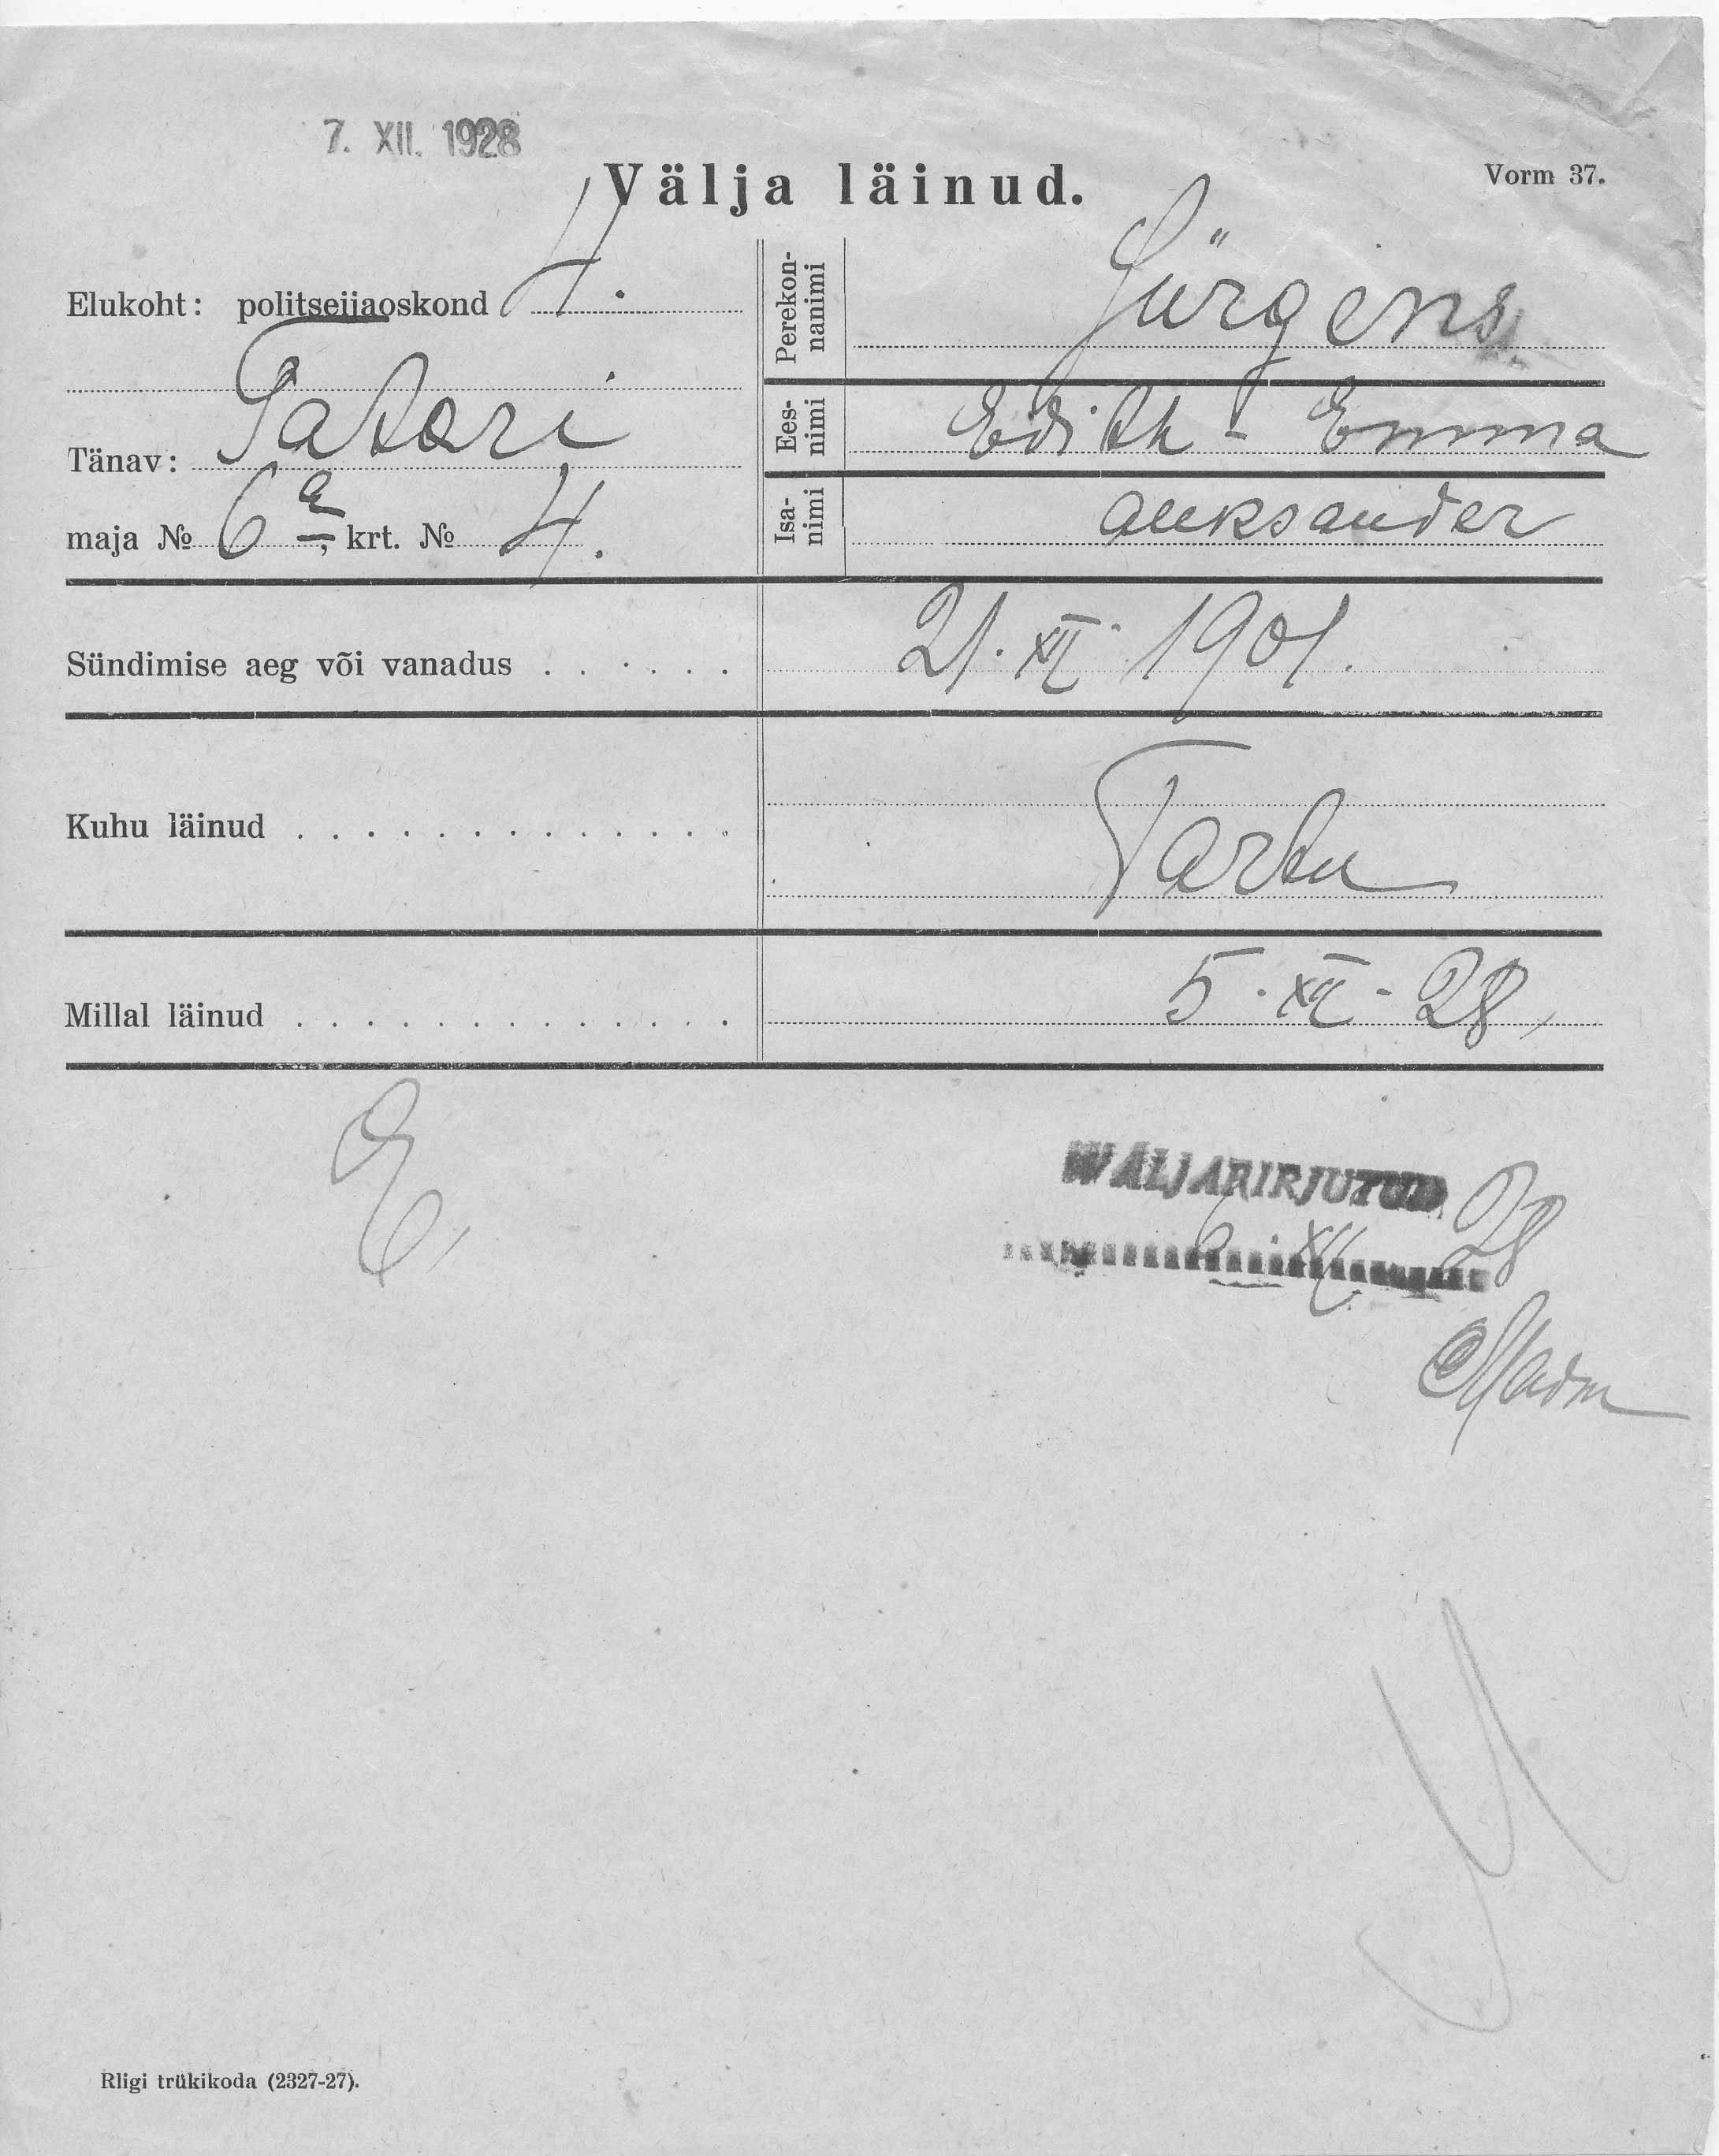 7. XII. 1928
Välja läinud.
Vorm 37.
Elukoht: politseijaoskond 4.
Tänav: Tatari
maja № 6 a, krt. № 4.
Perekon-
nanimi
Jürgens
Ees-
nimi
Edith - Emma
Isa-
nimi
Aleksander
Sündimise aeg või vanadus . . . . . . 21. XII. 1901.
Kuhu läinud . . . . . . . . . . . . . Tartu
Millal läinud . . . . . . . . . . . . . 5. XII - 28,
WÄLJAKIRJUTUD
6. XII 28
Riigi trükikoda (2327-27).